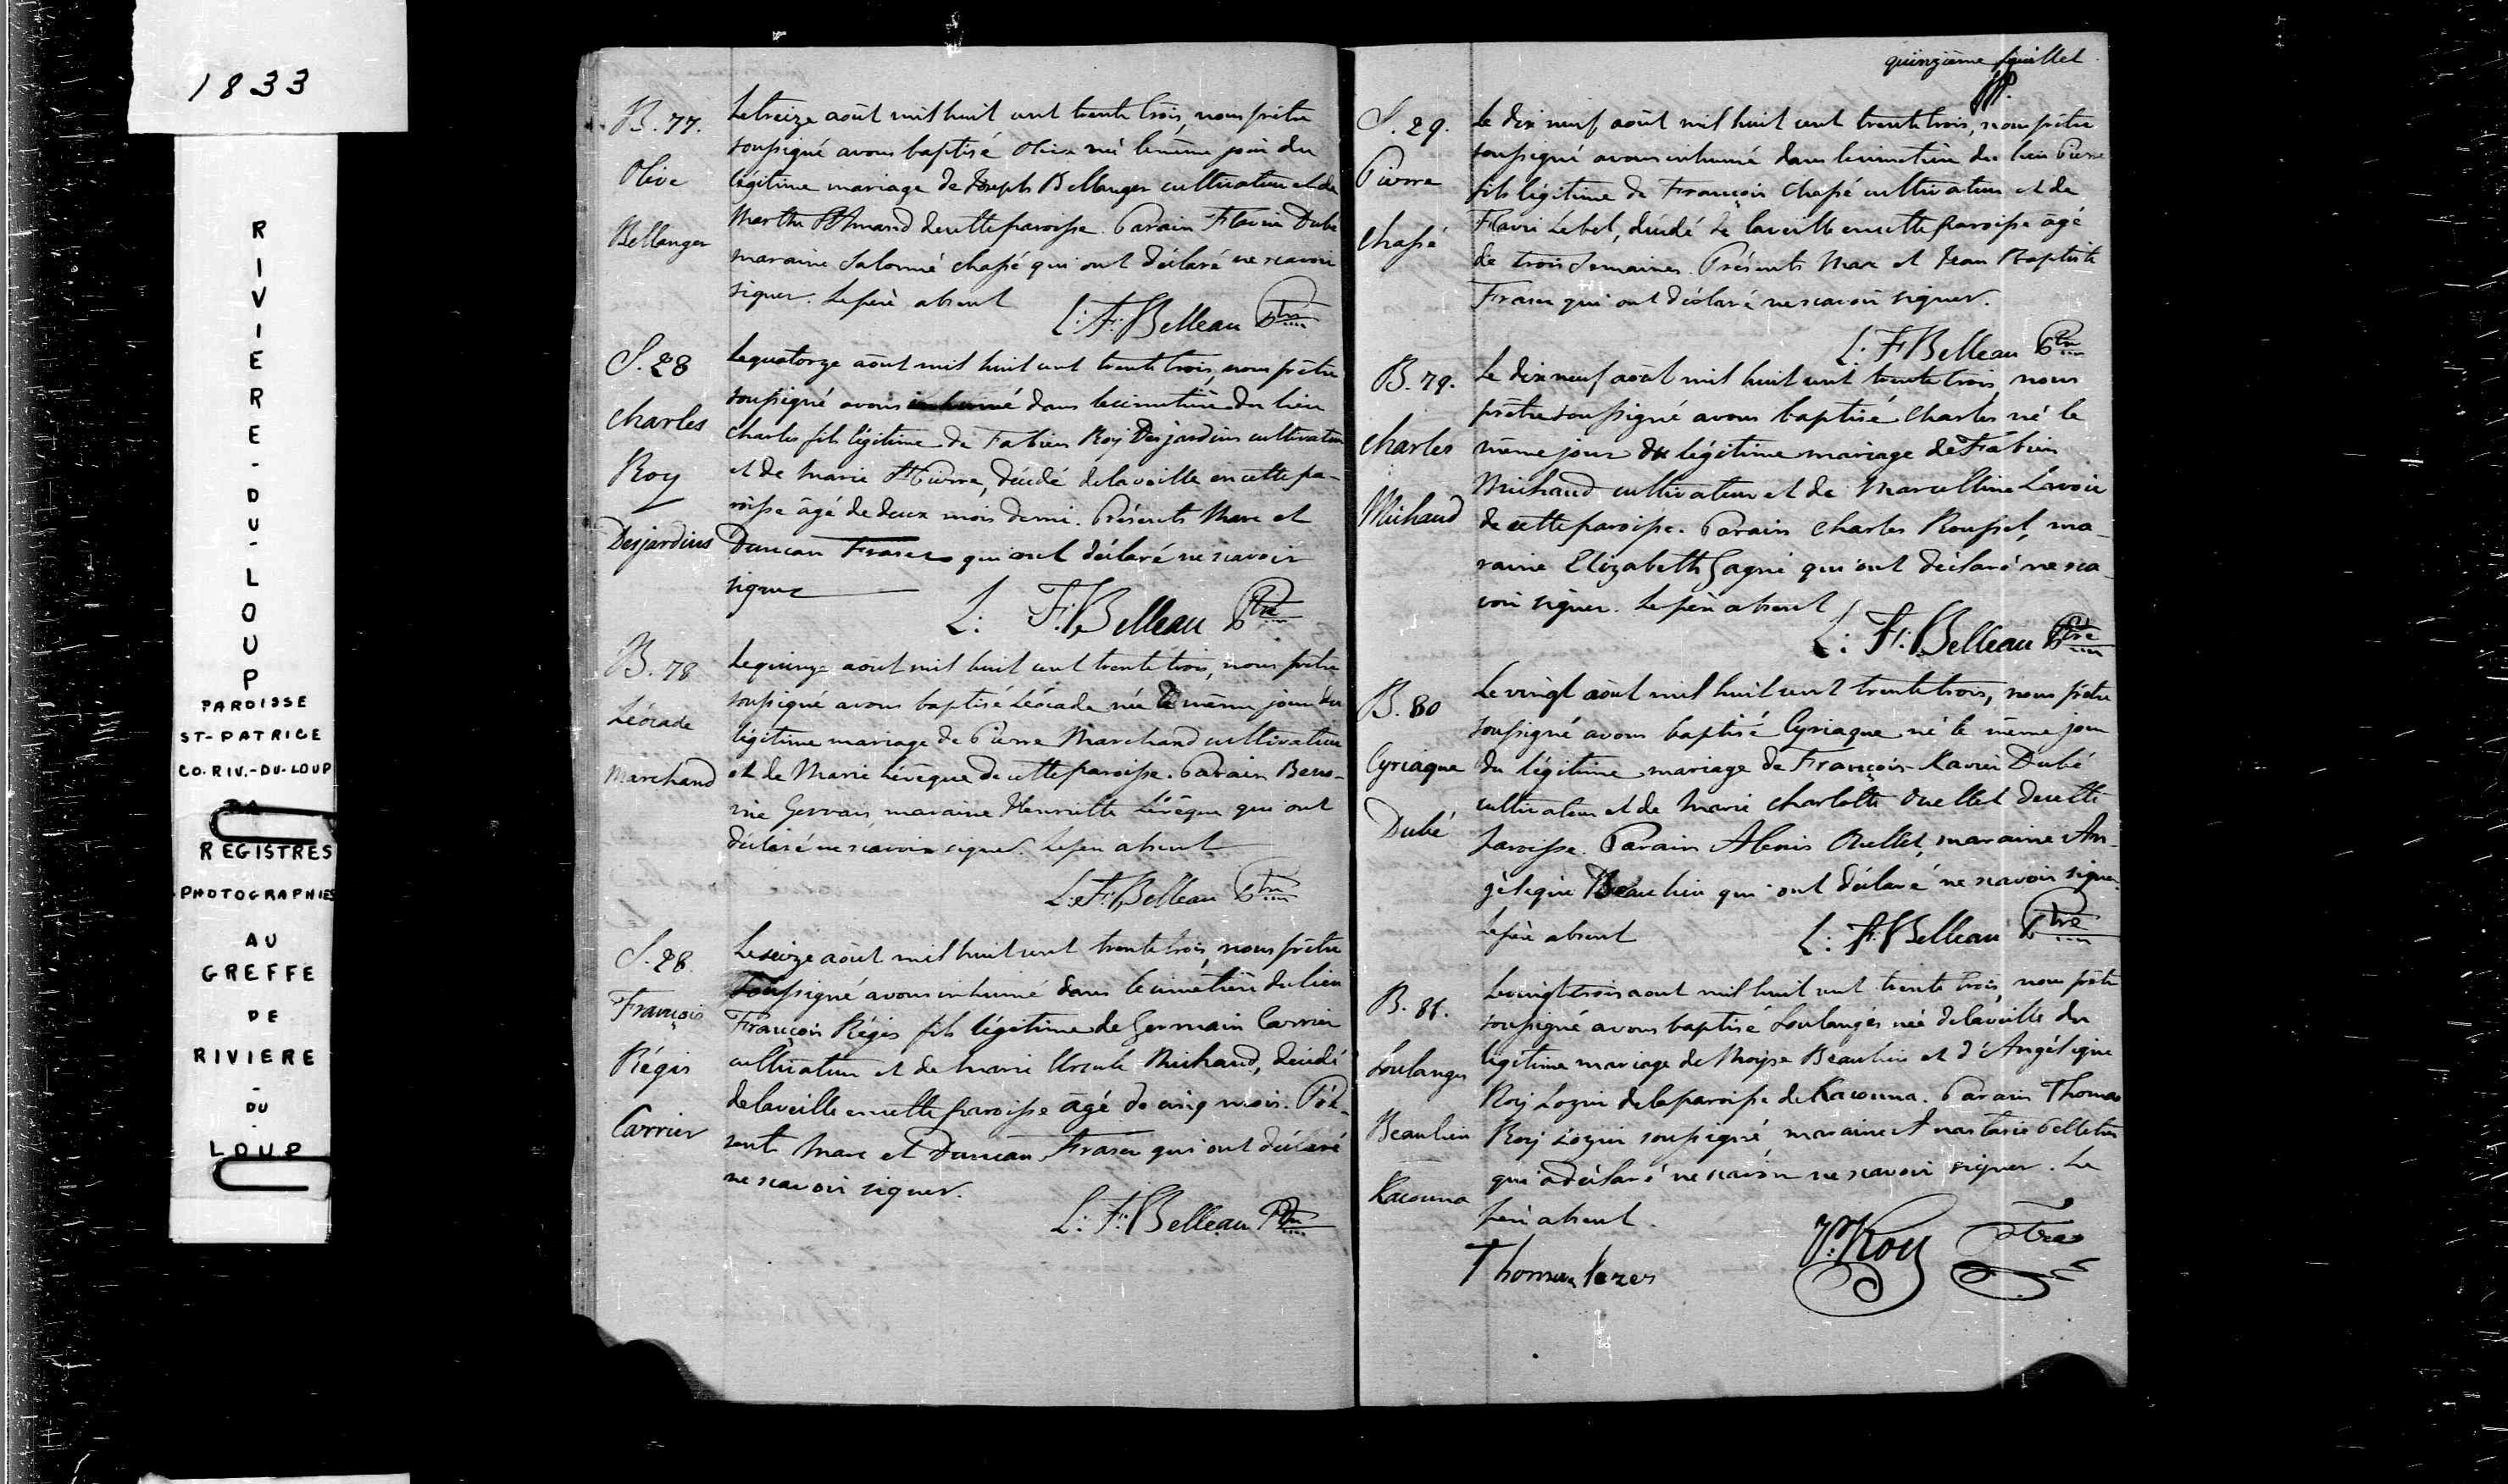 1833
RIVIERE-DU-LOUP
PAROISSE
ST-PATRICE
CO. RIV.-DU-LOUP
REGISTRES
PHOTOGRAPHIES
AU
GREFFE
DE
RIVIERE
-
DU
-
LOUP
B. 77.
Olive
Bellanger
Le treize août mil huit cent trente trois, nous prêtre
soussigné avons baptisé Olive née le même jour du
légitime mariage de Joseph Bellanger cultivateur et de
Marthe St Amand de cette paroisse. Parain Flavien Dubé
maraine Salomé chassé qui ont déclaré ne scavoir
signer. Le père absent
L: F: Belleau Ptre
S. 28
Charles
Roy
Desjardins
Le quatorze août mil huit cent trente trois, nous prêtre
soussigné avons inhumé dans le cimetière du lieu
Charles fils légitime de Fabien Roy Desjardins cultivateur
et de Marie St Pierre, décédé de la veille en cette pa-
roisse âgé de deux mois demi. Présents Marc et
Duncan Fraser qui ont déclaré ne scavoir
signer
L: F: Belleau Ptre
B. 78
Léocade
Marchand
Le quinze août mil huit cent trente trois, nous prêtre
soussigné avons baptisé Léocade née le même jour du
légitime mariage de Pierre Marchand cultivateur
et de Marie Lévêque de cette paroisse. Parain Beno-
nie Gervais, maraine Henriette Lévêque qui ont
déclaré ne scavoir signer. Le père absent
L: F: Belleau Ptre
S. 28.
François
Régis
Carrier
Le seize août mil huit cent trente trois, nous prêtre
soussigné avons inhumé dans le cimetière du lieu
François Régis fils légitime de Germain Carrier
cultivateur et de Marie Ursule Michaud, décédé
de la veille en cette paroisse âgé de cinq mois. Pré-
sents Marc et Duncan Fraser qui ont déclaré
ne scavoir signer.
L: F: Belleau. Ptre
quinzième feuillet
S. 29.
Pierre
chassé
Le dix neuf août mil huit cent trente trois, nous prêtre
soussigné avons inhumé dans le cimetière du lieu Pierre
fils légitime de François Chassé cultivateur et de
Flavie Lebel, décédé de la veille en cette paroisse âgé
de trois semaines. Présents Marc et Jean Baptiste
Fraser qui ont déclaré ne scavoir signer.
L: F: Belleau Ptre
B. 79.
charles
Michaud
Le dix neuf août mil huit cent trente trois, nous
prêtre soussigné avons baptisé Charles né le
même jour du légitime mariage de Fabien
Michaud cultivateur et de Marcelline Lavoie
de cette paroisse. Parain Charles Roussel, ma-
raine Elizabeth Gagné qui ont déclaré ne sca-
voir signer. Le père absent
L: F: Belleau Ptre
B. 80
Cyriaque
Dubé
Le vingt août mil huit cent trente trois, nous prêtre
soussigné avons baptisé Cyriaque né le même jour
du légitime mariage de François-Xavier Dubé
cultivateur et de Marie Charlotte Ouellet de cette
paroisse. Parain Alexis Ouellet, maraine An-
gélique Beaulieu qui ont déclaré ne scavoir signer.
Le père absent
L: F: Belleau Ptre
B. 81.
Soulanges
Beaulieu
Kacouna
Le vingt trois aout mil huit cent trente trois, nous prêtre
soussigné avons baptisé Soulanges née de la veille du
légitime mariage de Moyse Beaulieu et d'Angélique
Roy Lozier de la paroisse de Kacouna. Parain Thomas
Roy Lozier soussigné maraine Anastasie Pelletier
qui a déclaré ne scavoir ne scavoir signer. Le
père absent.
Thomas
Roy Ptre